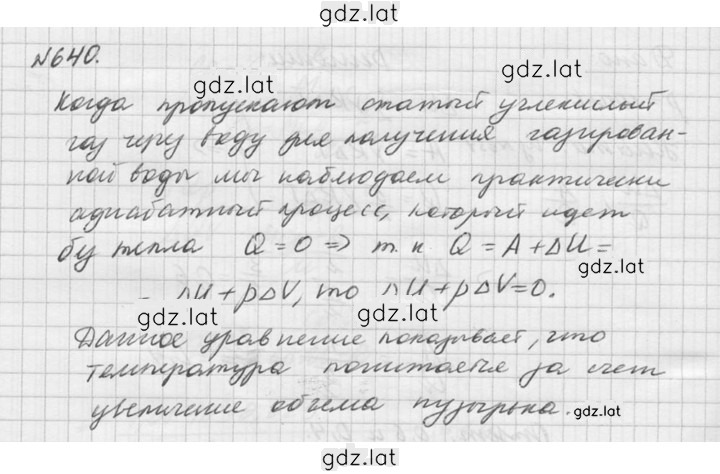 gdz.lat
№640.
gdz.lat
Когда пропускают сжатый углекислый
газ через воду для получения газирован-
gdz.lat
ной воды мы наблюдаем практически
адиабатный процесс, который идет
без тепла Q = 0 => т. к. Q = A + ΔU =
gdz.lat
= ΔU + pΔV, то ΔU + pΔV = 0.
gdz.lat
Данное уравнение показывает, что
температура понижается за счет
увеличение объема пузырька.
gdz.lat
gdz.lat